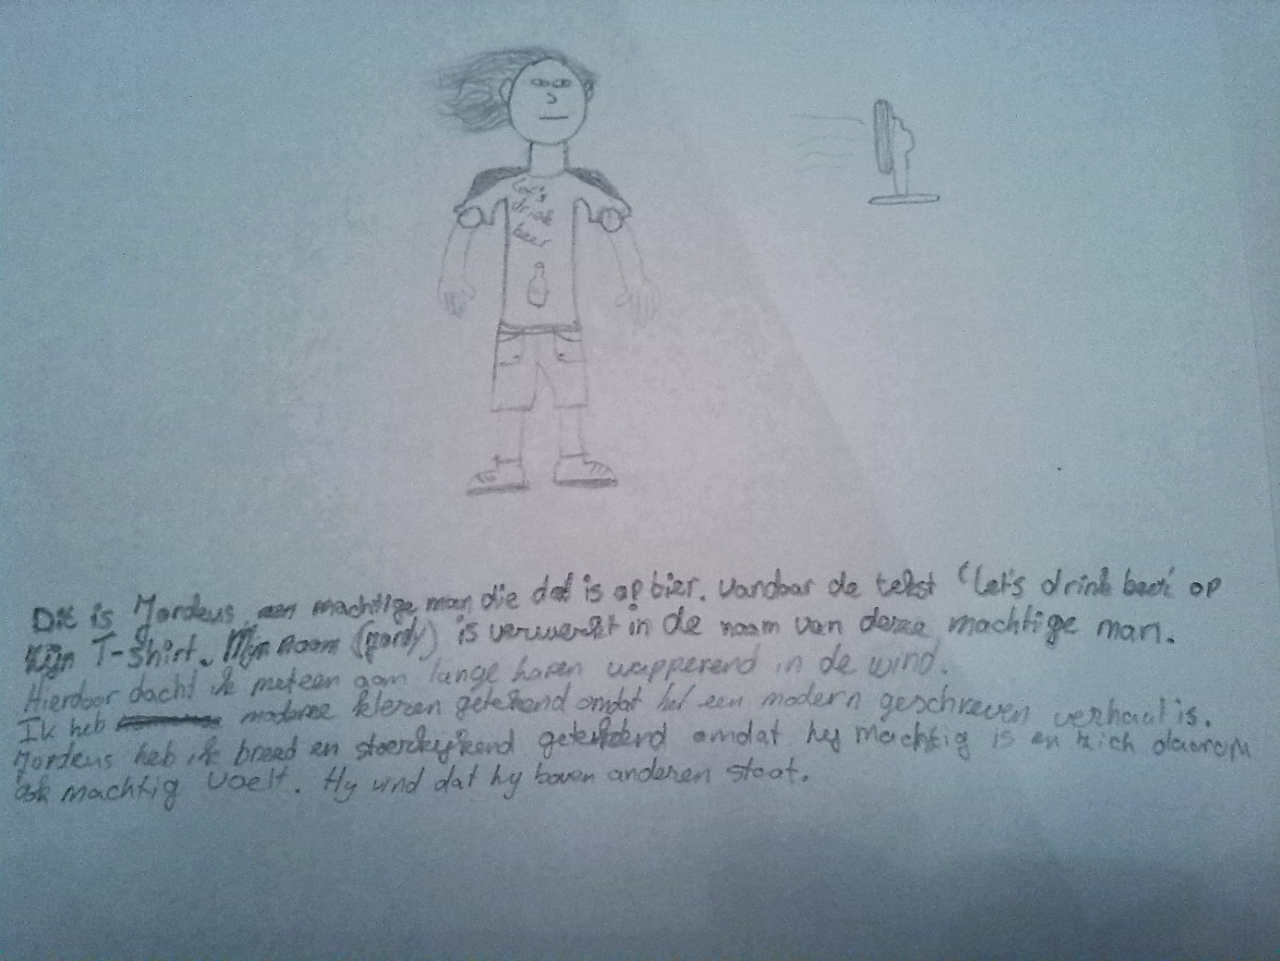 Let's
drink
beer
Dit is Mordeus, een machtige man die dol is op bier. Vandaar de tekst 'Let's drink beer' op
zijn T-Shirt. Mijn naam is verwerkt in de naam van deze machtige man.
Hierdoor dacht ik meteen aan lange haren wapperend in de wind.
Ik heb moderne kleren getekend omdat het een modern geschreven verhaal is.
Mordeus heb ik breed en stoerkijkend getekend omdat hij machtig is en zich daarom
ook machtig voelt. Hij vind dat hij boven anderen staat.